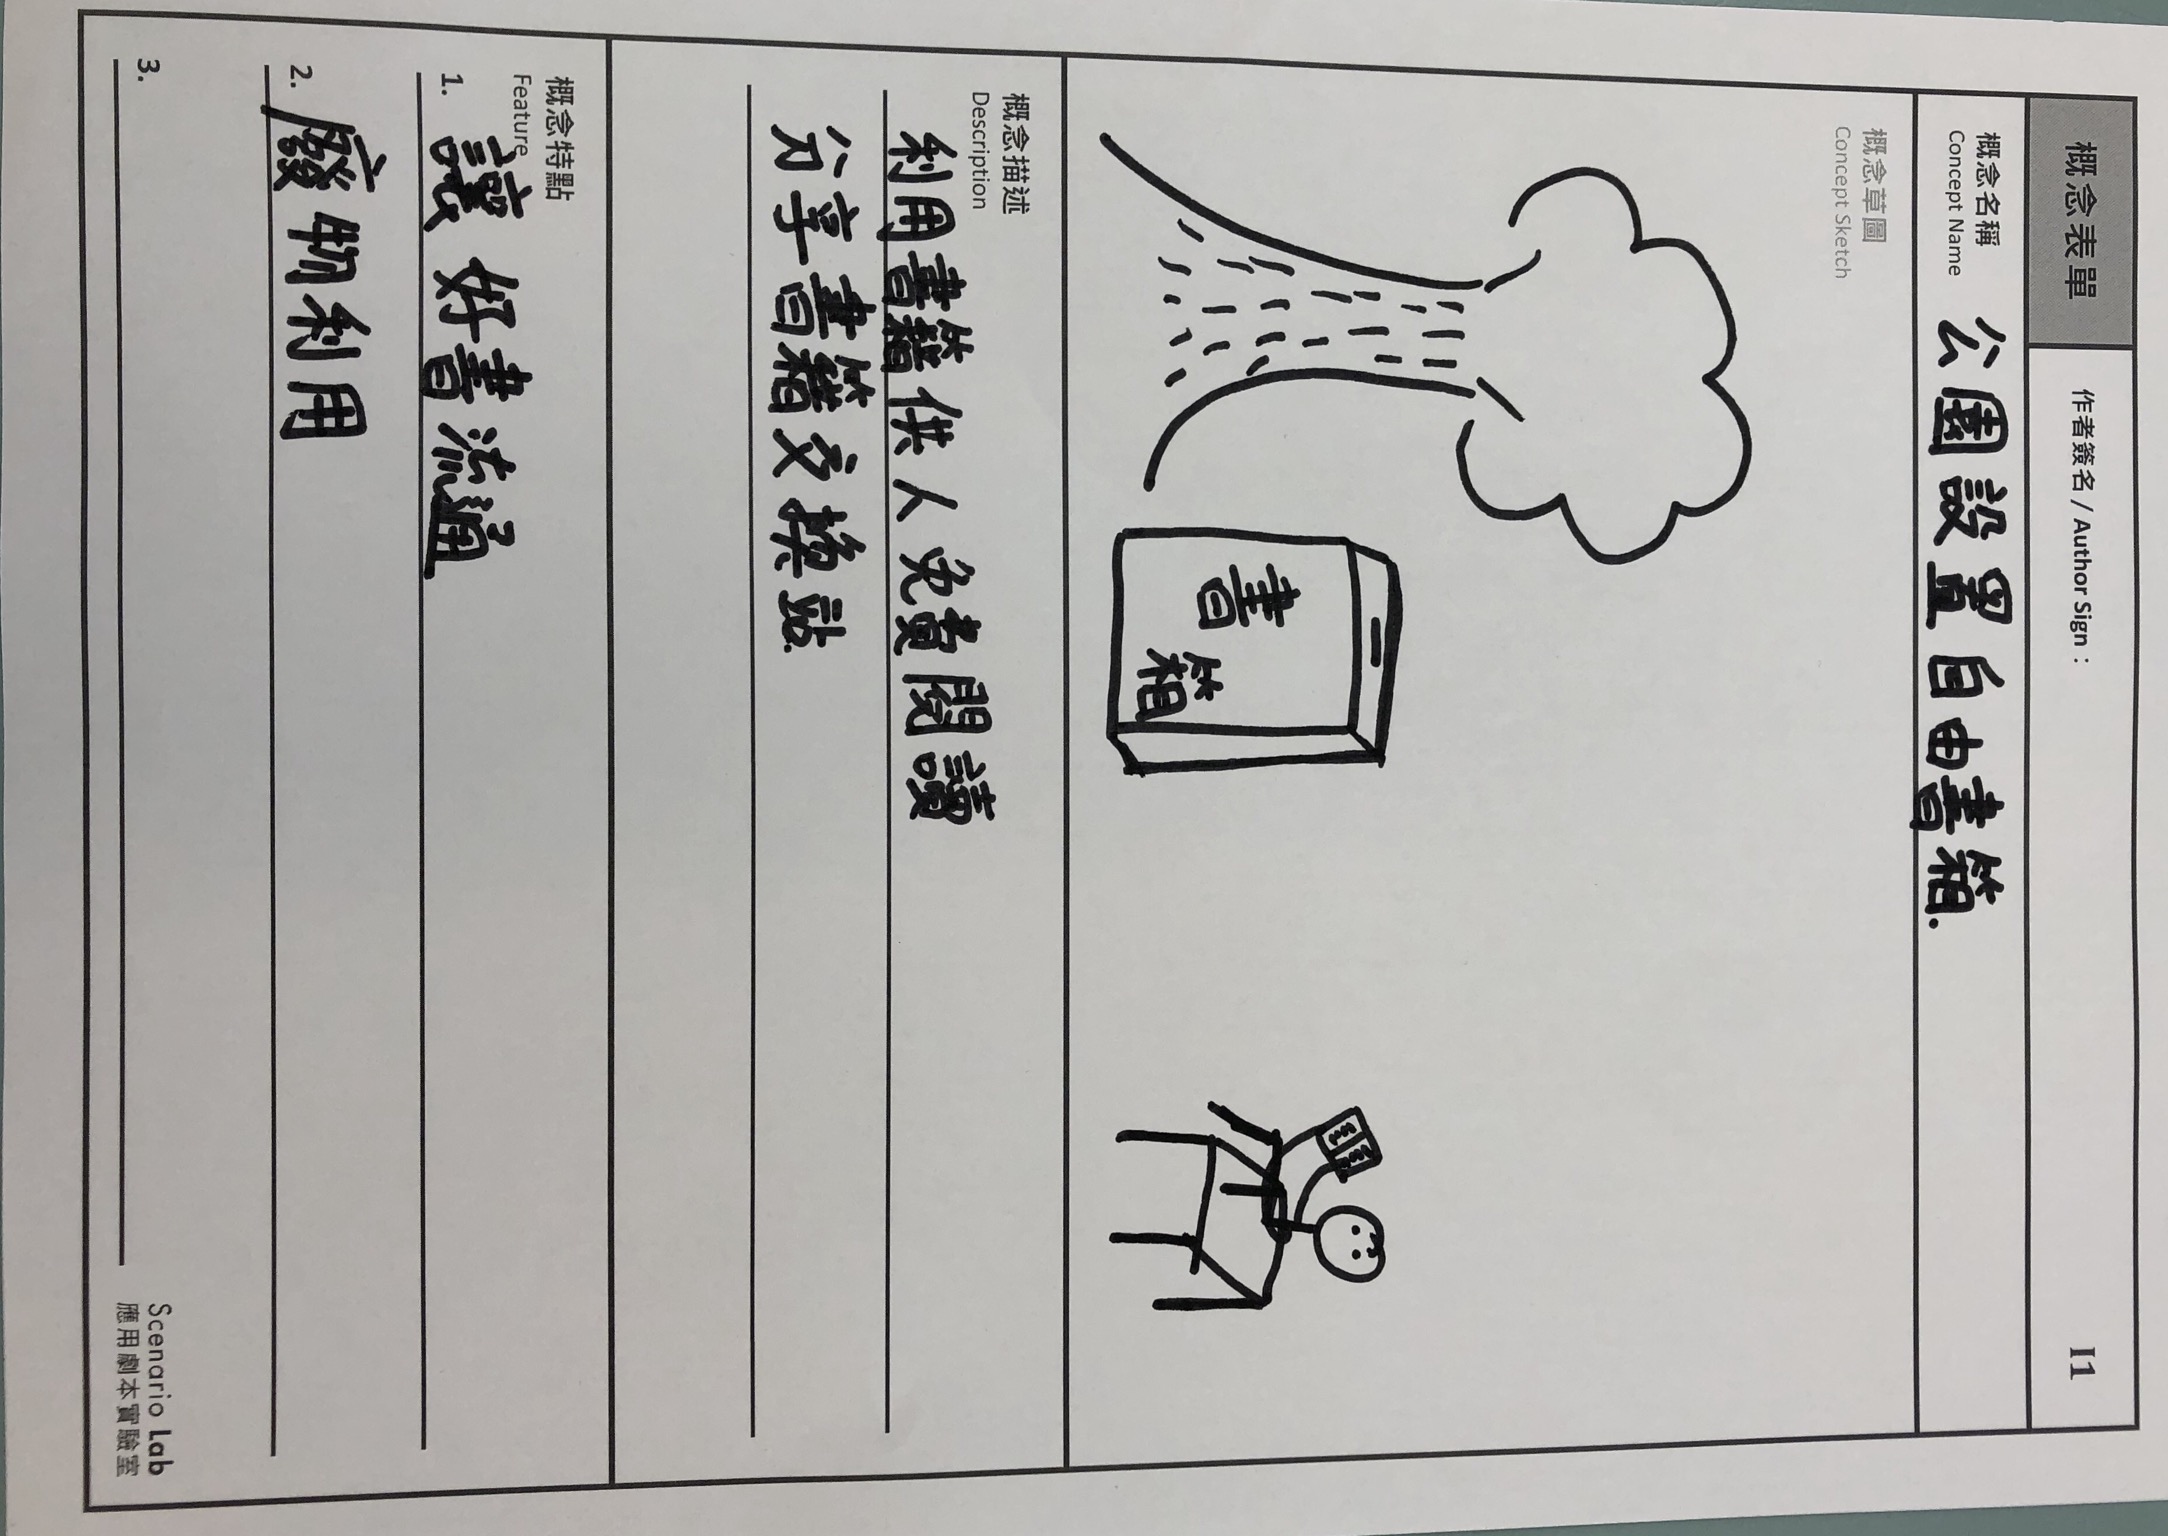 概念表單 作者簽名 / Author Sign： I1
概念名稱
Concept Name
公園設置自由書箱.
概念草圖
Concept Sketch
書
箱
概念描述
Description
利用書籍供人免費閱讀
分享書籍交換站.
概念特點
Feature
1. 讓好書流通
2. 廢物利用
3.
Scenario Lab
應用劇本實驗室